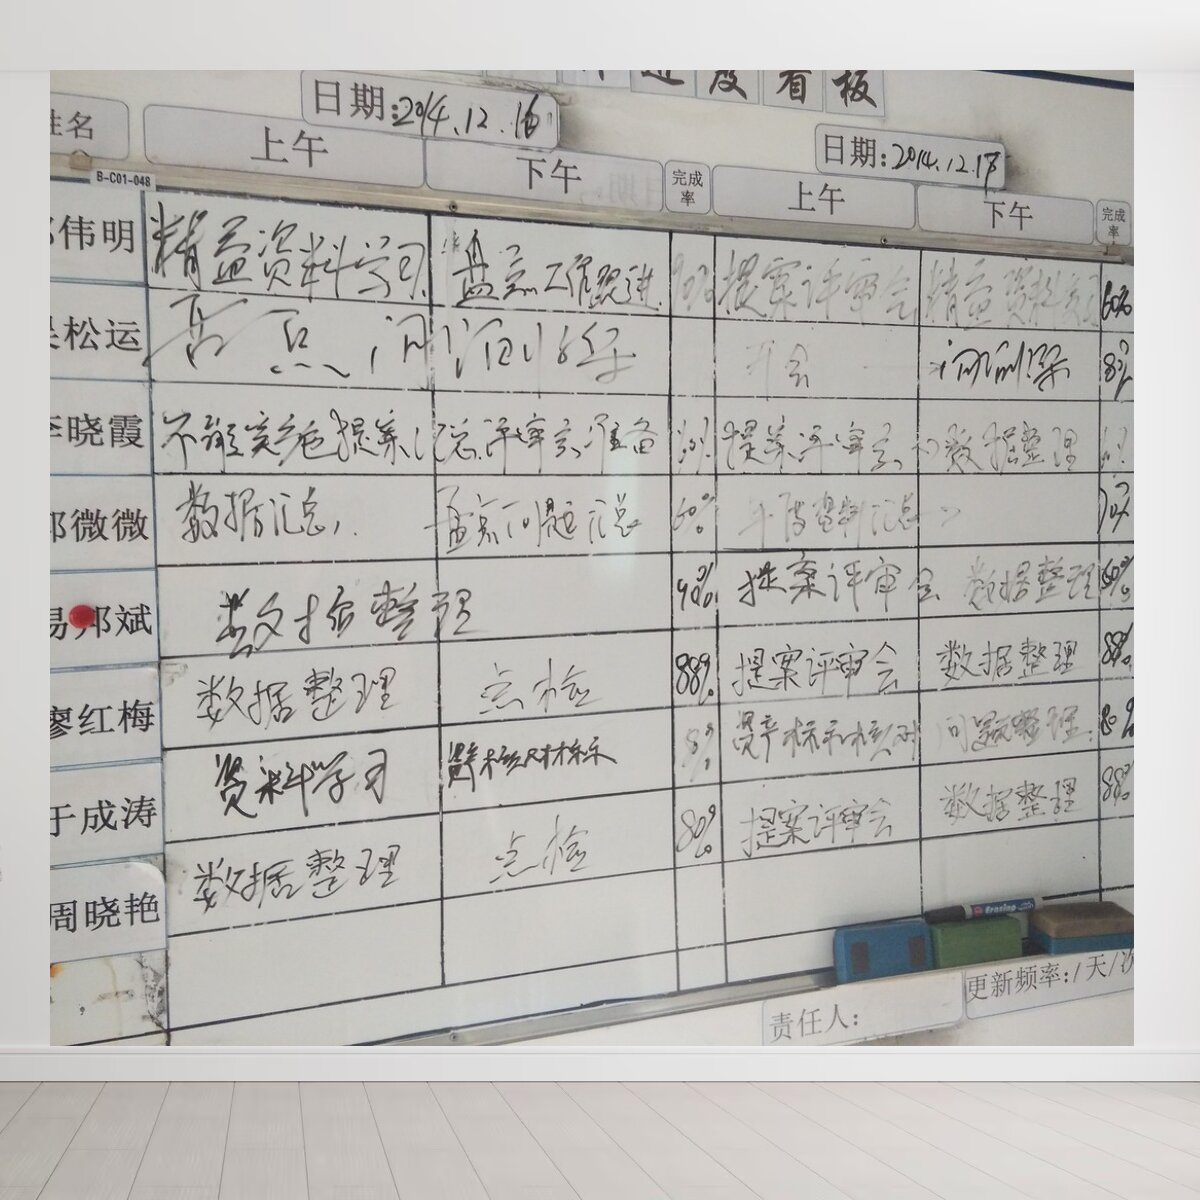 进度看板
日期:2014.12.16
日期:2014.12.17
姓名 上午 下午 完成率 上午 下午 完成率
B-C01-048
伟明 精益资料学习 盘点工作跟进 90% 提案评审会 精益资料学习 60%
松运 开会 8%
晓霞 提案汇总评审会准备 提案评审会 数据整理
微微 数据汇总 盘点问题汇总 60% 年度资料汇总
易邦斌 数据整理 90% 提案评审会 数据整理 60%
廖红梅 数据整理 点检 88% 提案评审会 数据整理 88%
于成涛 资料学习 8% 资产标示核对 问题整理 80%
周晓艳 数据整理 点检 80% 提案评审会 数据整理 88%
责任人:
更新频率:1天/次